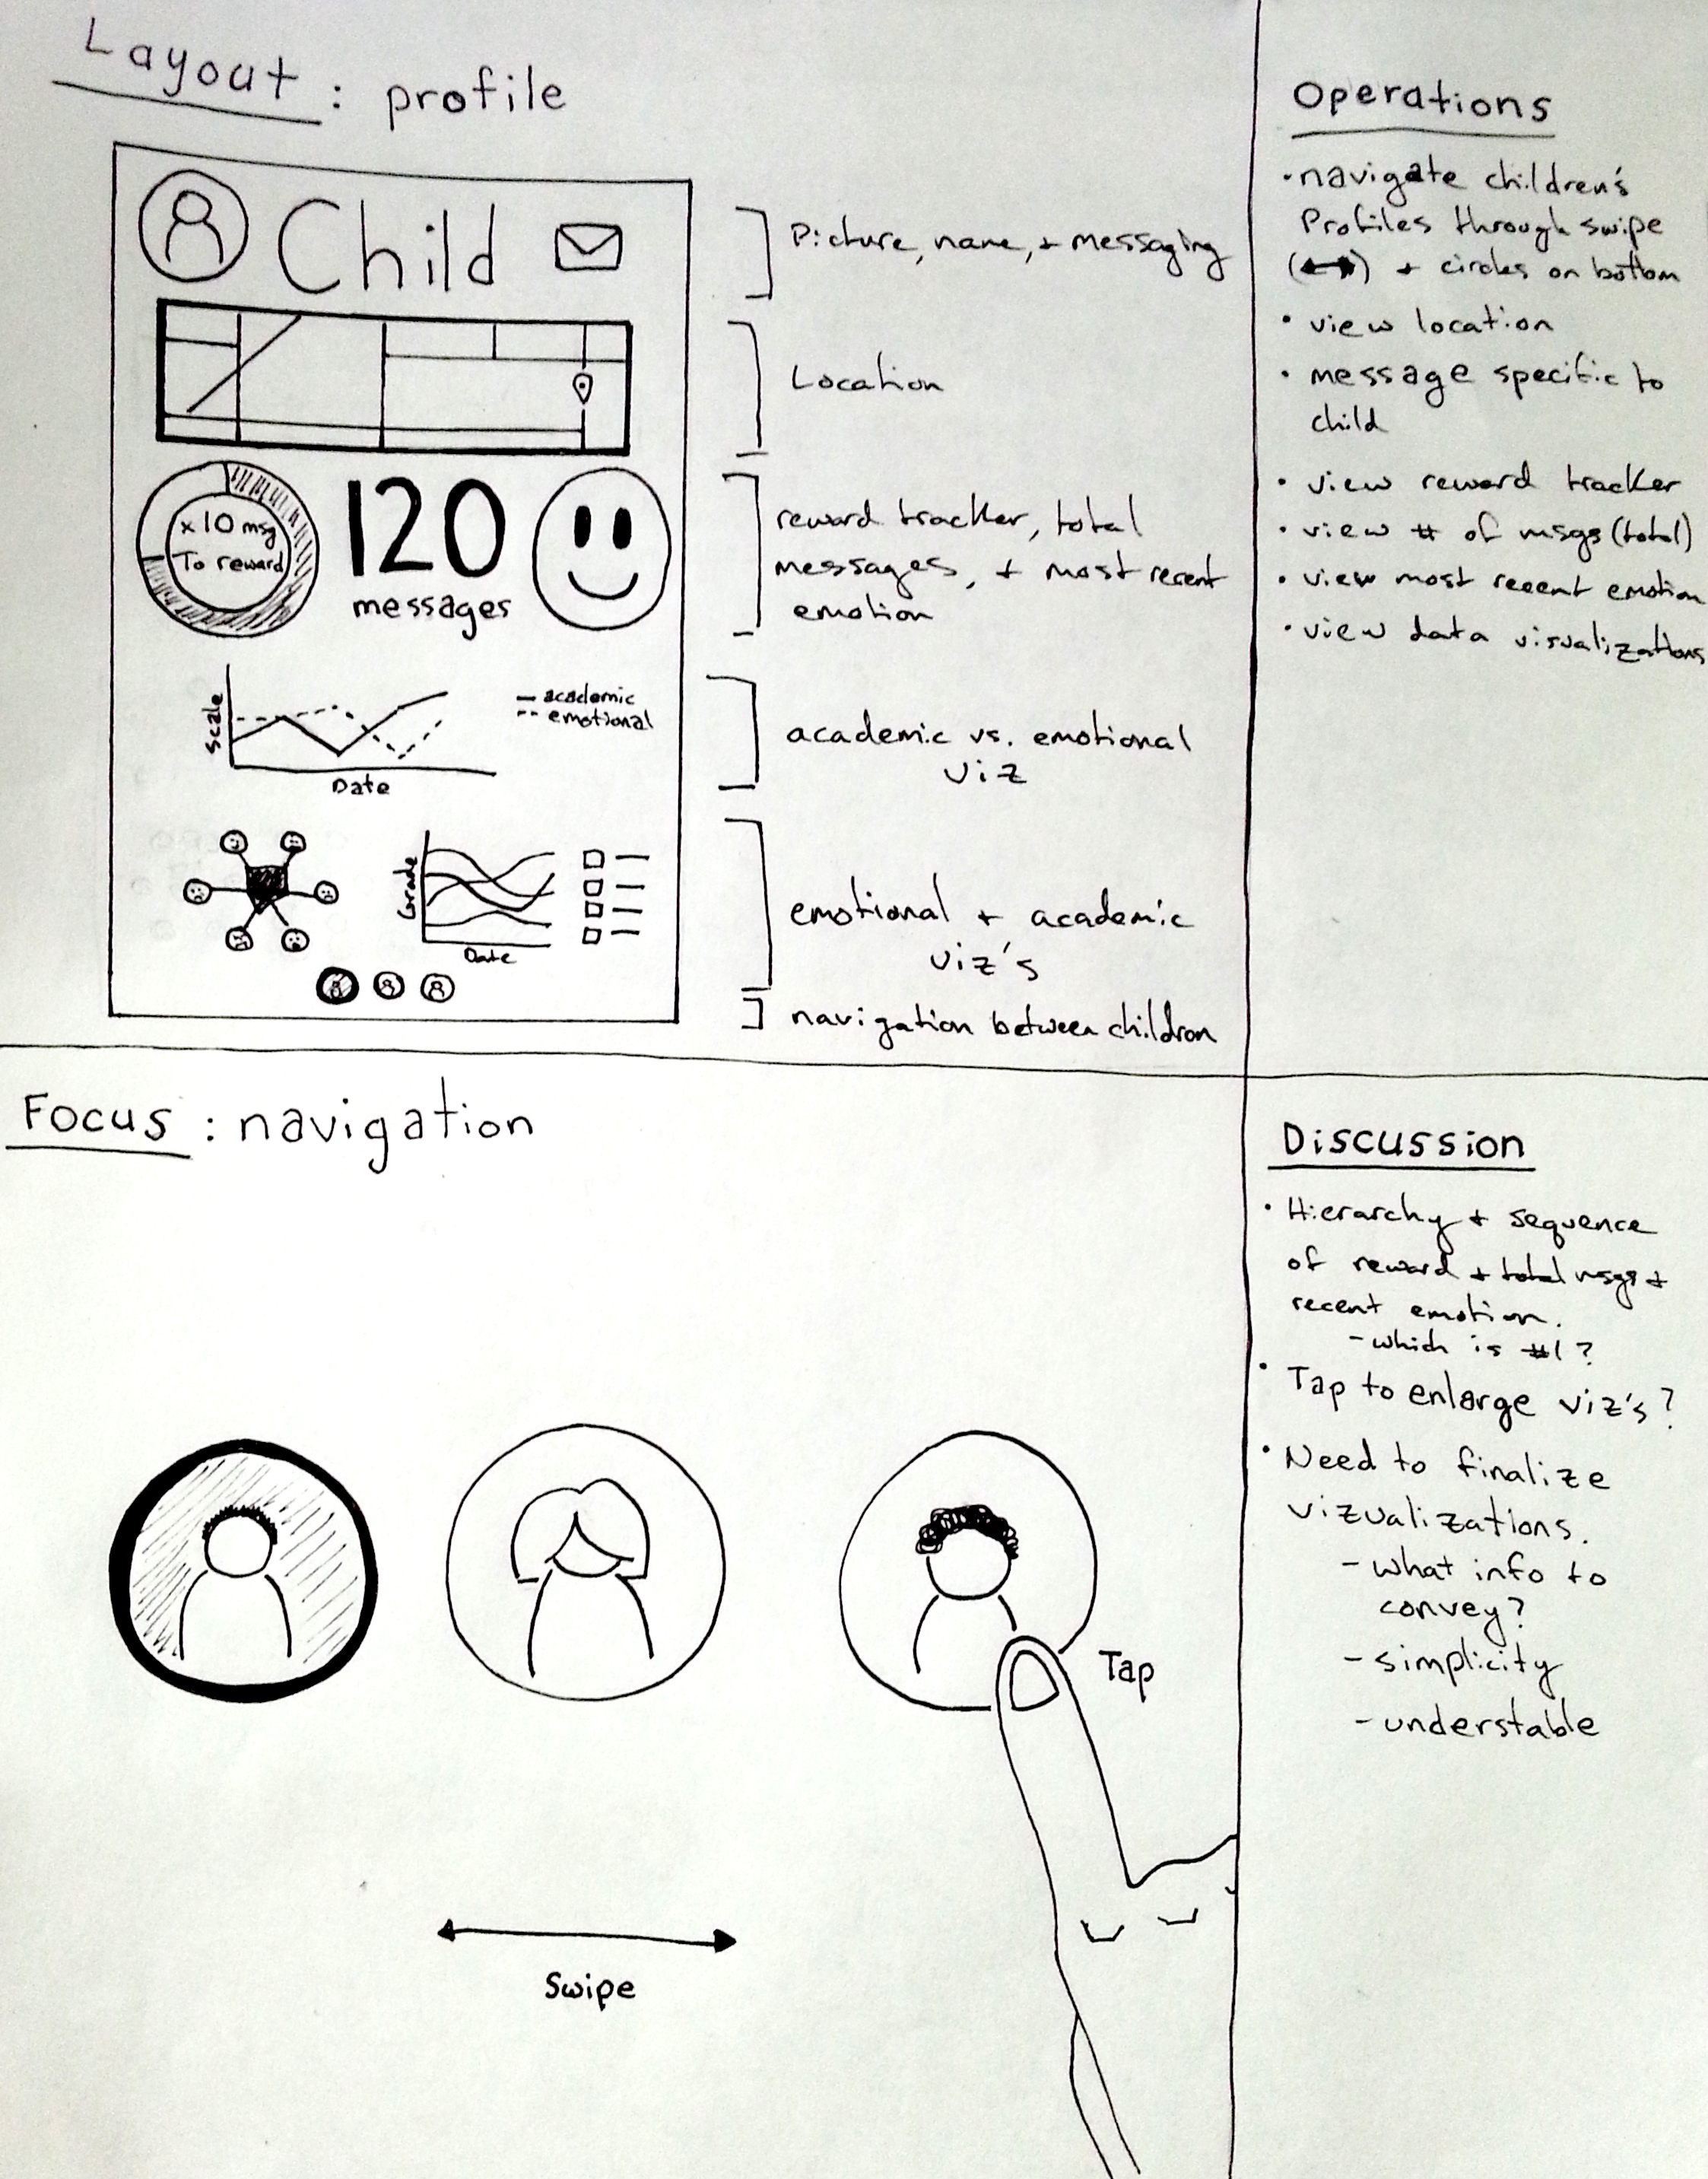 Layout : profile
Child
Picture, name, + messaging
Location
x 10 msg
To reward
120
messages
reward tracker, total
messages, + most recent
emotion
Scale
Date
academic
emotional
academic vs. emotional
viz
Grade
Date
emotional + academic
viz's
navigation between children
Operations
• navigate children's
Profiles through swipe
(↔) + circles on bottom
• view location
• message specific to
child
• view reward tracker
• view # of msgs (total)
• view most recent emotion
• view data visualizations
Focus : navigation
Tap
Swipe
Discussion
• Hierarchy + sequence
of reward + total msgs +
recent emotion.
- which is #1?
• Tap to enlarge viz's?
• Need to finalize
vizualizations.
- what info to
convey?
- simplicity
- understable